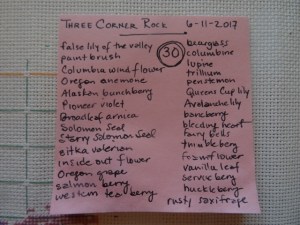 Three Corner Rock 6-11-2017
30
false lily of the valley
paint brush
Columbia wind flower
Oregon anemone
Alaskan bunchberry
Pioneer violet
Broadleaf arnica
Solomon Seal
Starry Solomon Seal
sitka valerian
inside out flower
Oregon grape
salmon berry
western tea berry
beargrass
columbine
lupine
trillium
penstemon
Queens Cup lily
Avalanche lily
baneberry
bleeding heart
fairy bells
thimble berry
foamflower
vanilla leaf
service berry
huckleberry
rusty saxifrage